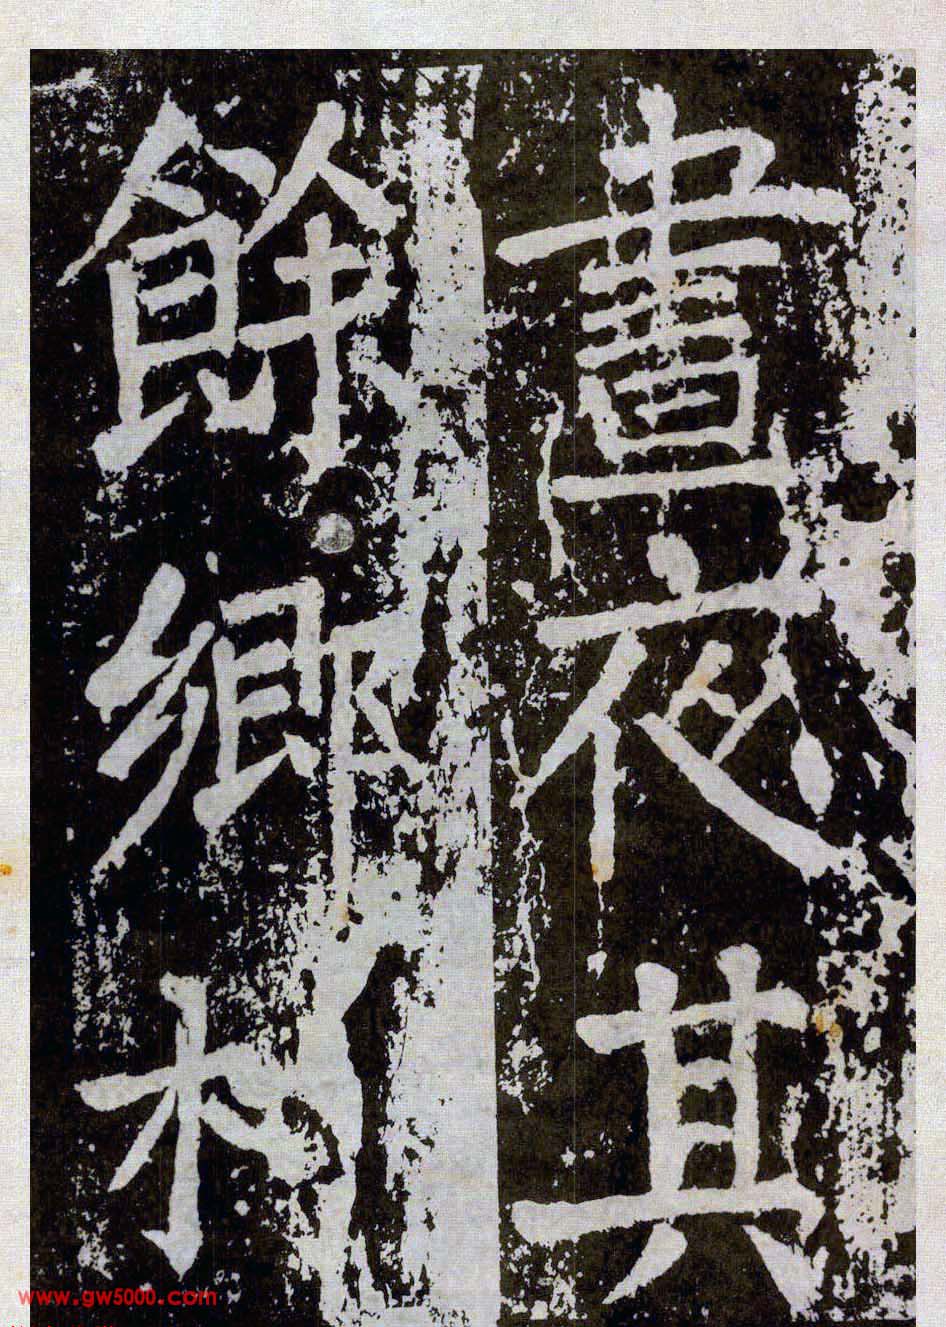 晝夜其
餘鄉村
www.gw5000.com